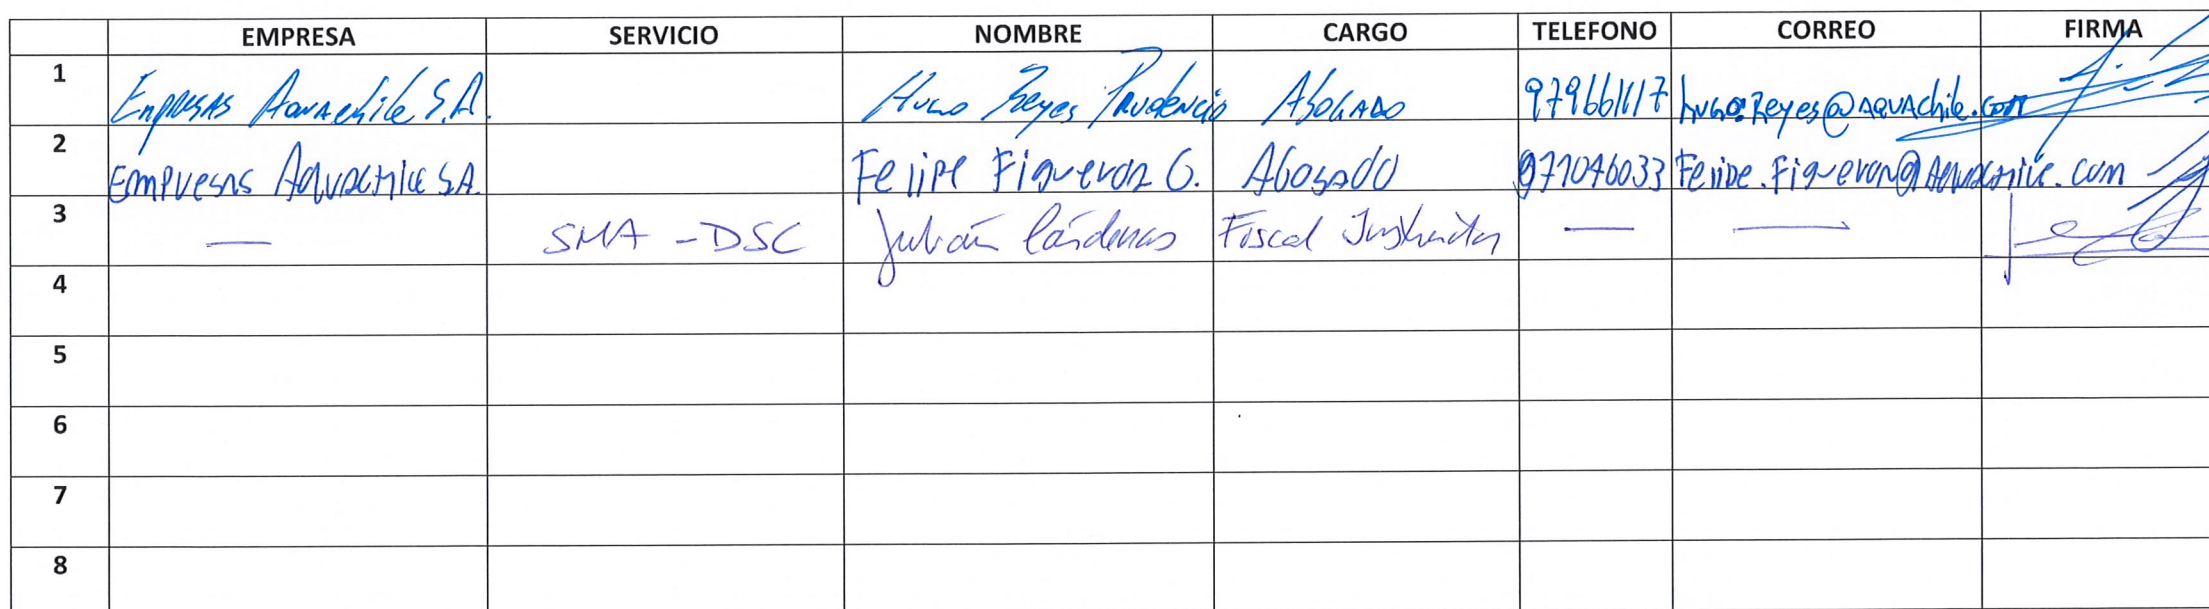 EMPRESA SERVICIO NOMBRE CARGO TELEFONO CORREO FIRMA
1 Empresas Aquachile S.A. Hugo Reyes Prudencio Abogado 979661117 hugo.Reyes@AQUAchile.com
2 Empresas Aquachile S.A. Felipe Figueroa G. Abogado 971046033 Felipe.Figueroa@Aquachile.com
3 — SMA - DSC Julián Cárdenas Fiscal Instructor — —
4
5
6
7
8